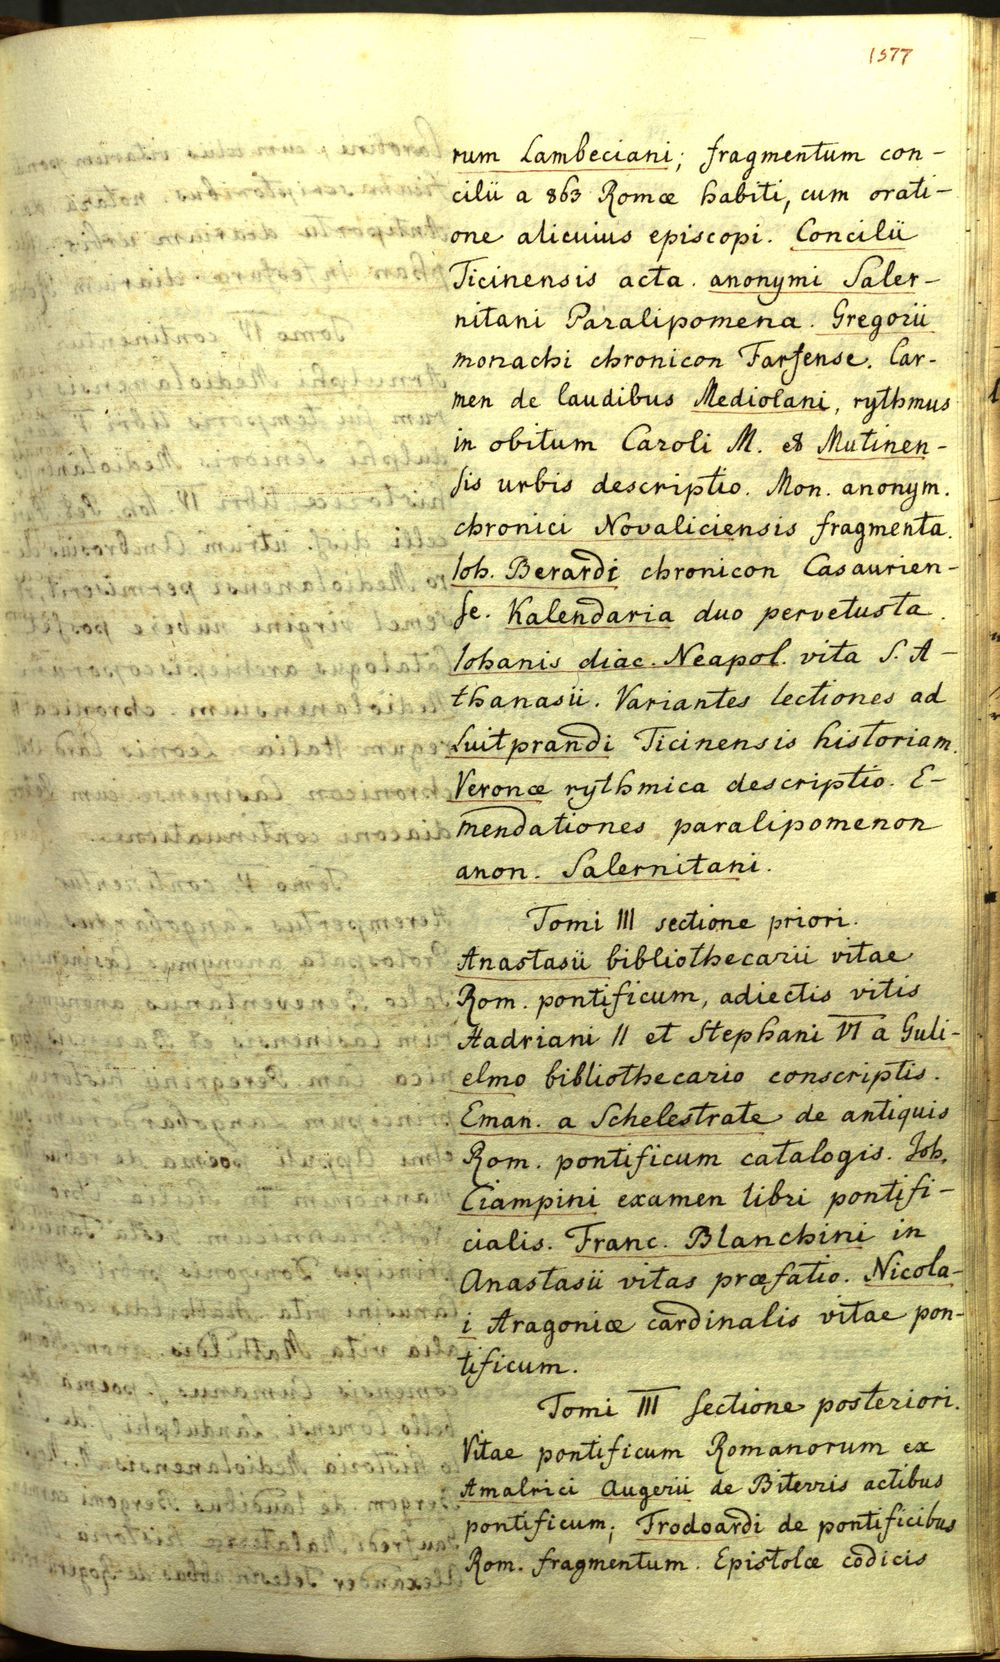 1577
rum Lambeciani; fragmentum con-
cilii a 863 Romæ habiti, cum orati-
one alicuius episcopi. Concilii
Ticinensis acta. anonymi Saler-
nitani Paralipomena. Gregorii
monachi chronicon Farfense. Car-
men de laudibus Mediolani, rythmus
in obitum Caroli M. et Mutinen-
sis urbis descriptio. Mon. anonym.
chronici Novaliciensis fragmenta.
Ioh. Berardi chronicon Casaurien-
se. Kalendaria duo pervetusta.
Iohanis diac. Neapol. vita S. A-
thanasii. Variantes lectiones ad
Luitprandi Ticinensis historiam.
Veronæ rythmica descriptio. E-
mendationes paralipomenon
anon. Salernitani.
Tomi III sectione priori.
Anastasii bibliothecarii vitae
Rom. pontificum, adiectis vitis
Hadriani II et Stephani VI a Guli-
elmo bibliothecario conscriptis.
Eman. a Schelestrate de antiquis
Rom. pontificum catalogis. Joh.
Ciampini examen libri pontifi-
cialis. Franc. Blanchini in
Anastasii vitas præfatio. Nicola-
i Aragoniæ cardinalis vitae pon-
tificum.
Tomi III sectione posteriori.
Vitae pontificum Romanorum ex
Amalrici Augerii de Biterris actibus
pontificum; Frodoardi de pontificibus
Rom. fragmentum. Epistolæ codicis